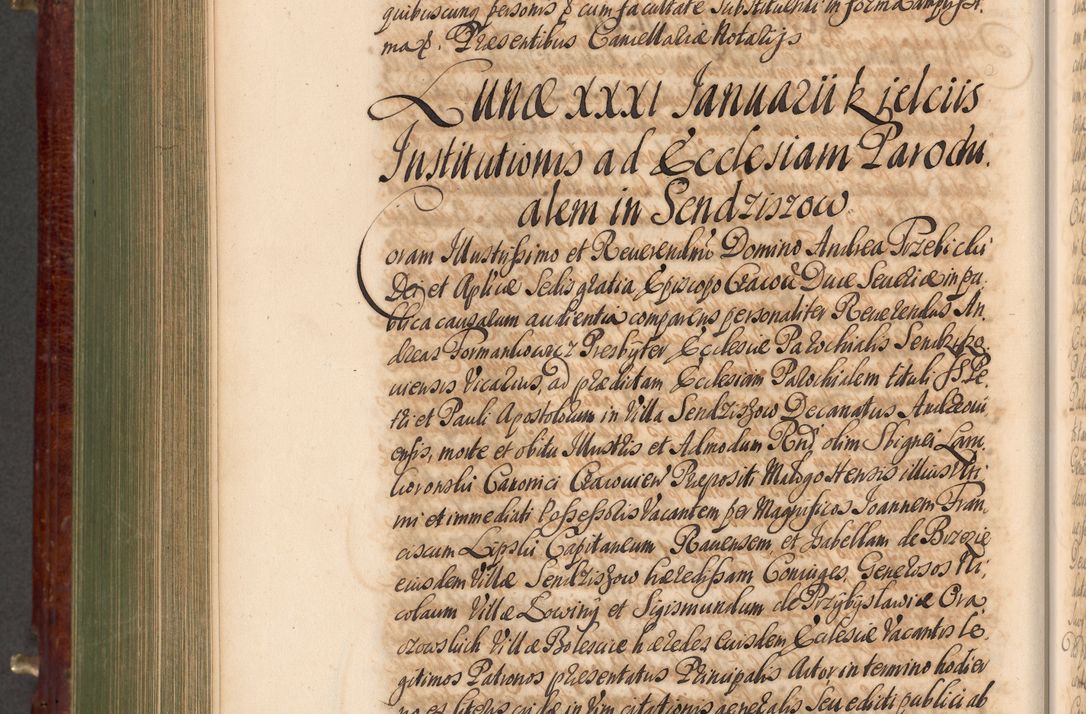 quibuscunq personis & cum facultate substituendi in forma ampliss.
ma &. Præsentibus Cancellariæ Notarijs
Lunæ XXXI Januarii Kielciis
Institutionis ad Ecclesiam Parochi.
alem in Sendziszow
Coram Illustrissimo et Reuerendmo Domino Andrea Trzebicki
Dei et Aplicæ Sedis gratia Episcopo Cracou Duce Seueriæ in pu.
blica causarum audientia comparens personaliter Reuerendus An,
dreas Formankowicz Presbyter, Ecclesiæ Parochialis Sendziszo.
uiensis Vicarius, ad prædictam Ecclesiam Parochialem tituli SS Pe.
tri et Pauli Apostolorum in Villa Sendziszow Decanatus Andreoui
ensis, morte et obitu Illustris et Admodum Rndi olim Sbignei Lani
horonski Canonici Cracouien Præpositi Małogostensis illius Vlti
mi et immediati Possessoris Vacantem per Magnificos Joannem Fran
ciscum Lipski Capitaneum Rauensem, et Isabellam de Brzezie
eiusdem Villæ Sendziszow hæredissam Coniuges, Generosos Ni,
colaum Villæ Łowiny et Sigismundum de Przybysławice Ora
czowskich Villæ Bolescie hæredes eiusdem Ecclesiæ Vacantis le
gitimos Patronos præsentatus Principalis Actor in termino hodier
no ex literis cridæ in Vim citationis generalis Seu edicti publici ab